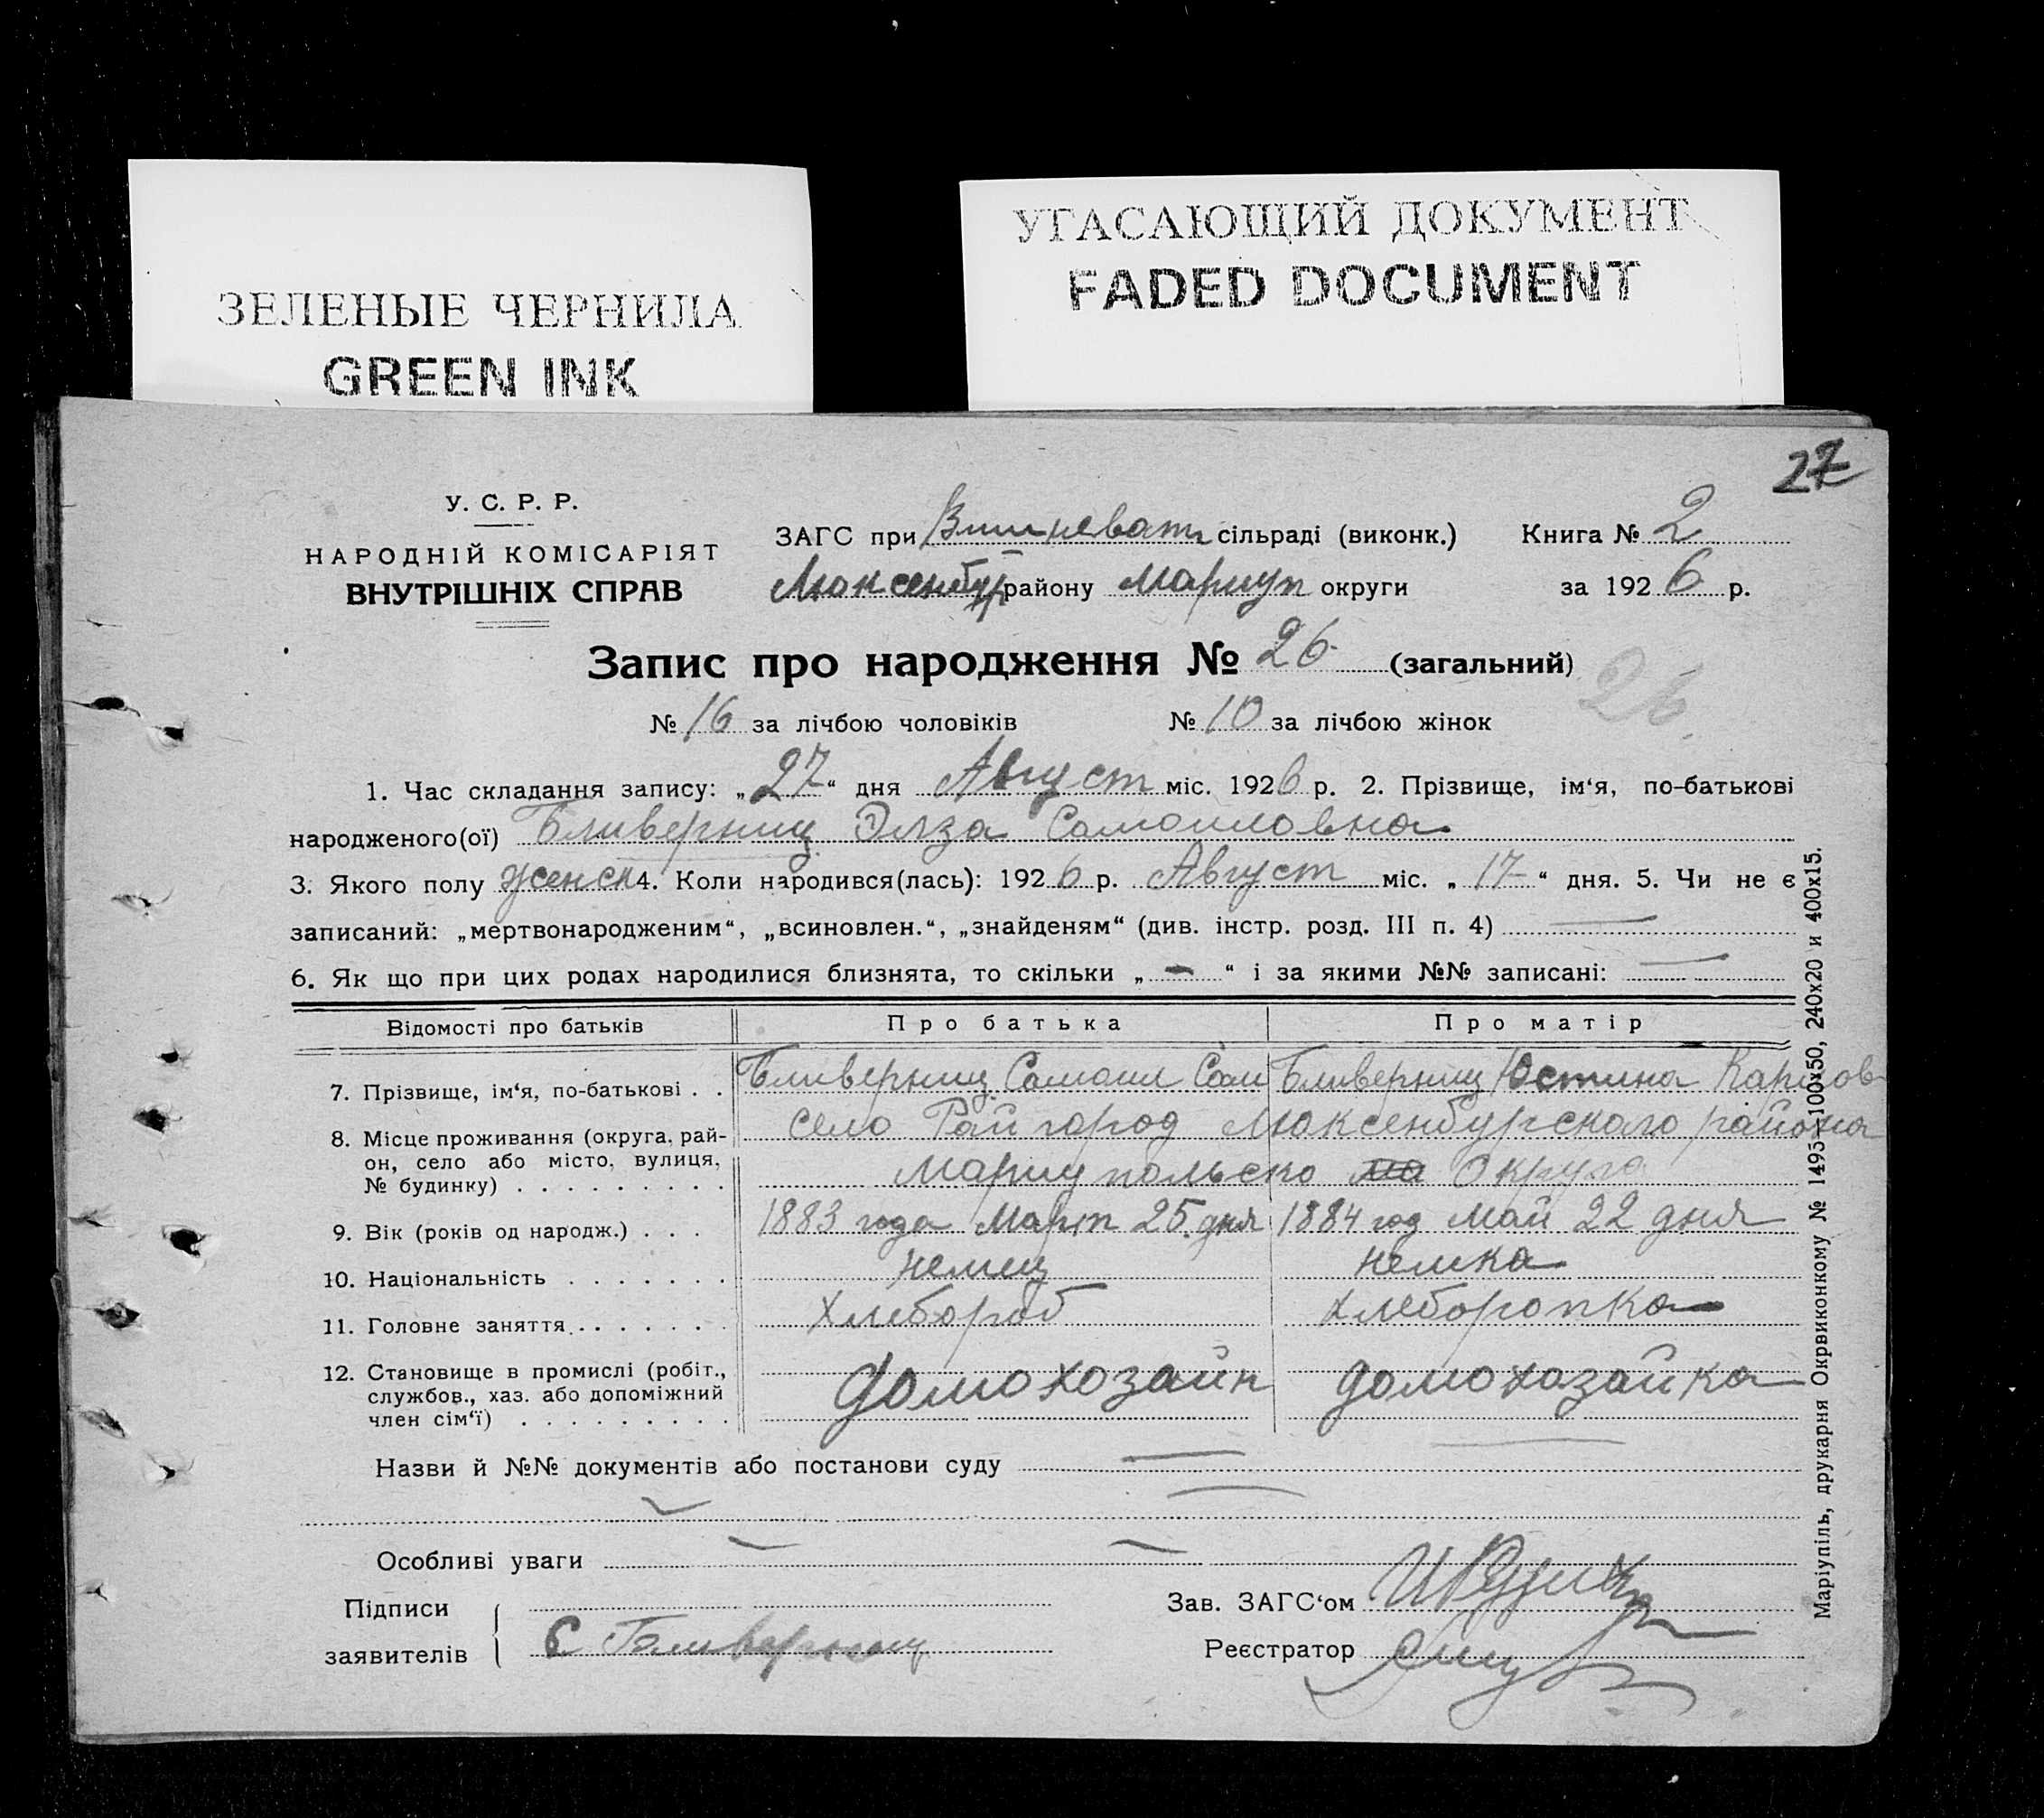 ЗЕЛЕНЫЕ ЧЕРНИЛА
GREEN INK
УГАСАЮЩИЙ ДОКУМЕНТ
FADED DOCUMENT
27
У. С. Р. Р.
НАРОДНІЙ КОМІСАРІЯТ
ВНУТРІШНІХ СПРАВ
ЗАГС при Вишневат сільраді (виконк.) Книга № 2
Люксенбур району Мариуп округи за 1926 р.
Запис про народження № 26 (загальний)
26
№ 16 за лічбою чоловіків № 10 за лічбою жінок
1. Час складання запису: „27“ дня Август міс. 1926 р. 2. Прізвище, ім‘я, по-батькові
народженого(ої) Бливерниц Элза Самоиловна
3. Якого полу женск 4. Коли народився(лась): 1926 р. Август міс. „17“ дня. 5. Чи не є
записаний: „мертвонародженим“, „всиновлен.“, „знайденям“ (див. інстр. розд. III п. 4) —
6. Як що при цих родах народилися близнята, то скільки „—“ і за якими №№ записані: —
Відомості про батьків Про батька Про матір
7. Прізвище, ім‘я, по-батькові . . Бливерниц Самоил Сам Бливерниц Юстина Карлов
8. Місце проживання (округа, рай-
он, село або місто, вулиця,
№ будинку) . . . . . . . . .
село Райгород Люксенбургского района
Мариупольско Округа
9. Вік (років од народж.) . . . 1883 года Март 25 дня 1884 год Май 22 дня
10. Національність . . . . . . . немец немка
11. Головне заняття . . . . . . . хлебороб хлеборопка
12. Становище в промислі (робіт.,
службов., хаз. або допоміжний
член сім‘ї) . . . . . . . . .
домохозаин домохозайка
Назви й №№ документів або постанови суду —
Особливі уваги —
Підписи
заявителів
С Бливерниц
Зав. ЗАГС‘ом
Реєстратор
Маріупіль, друкарня Окрвиконкому № 1495—100х50, 240х20 и 400х15.